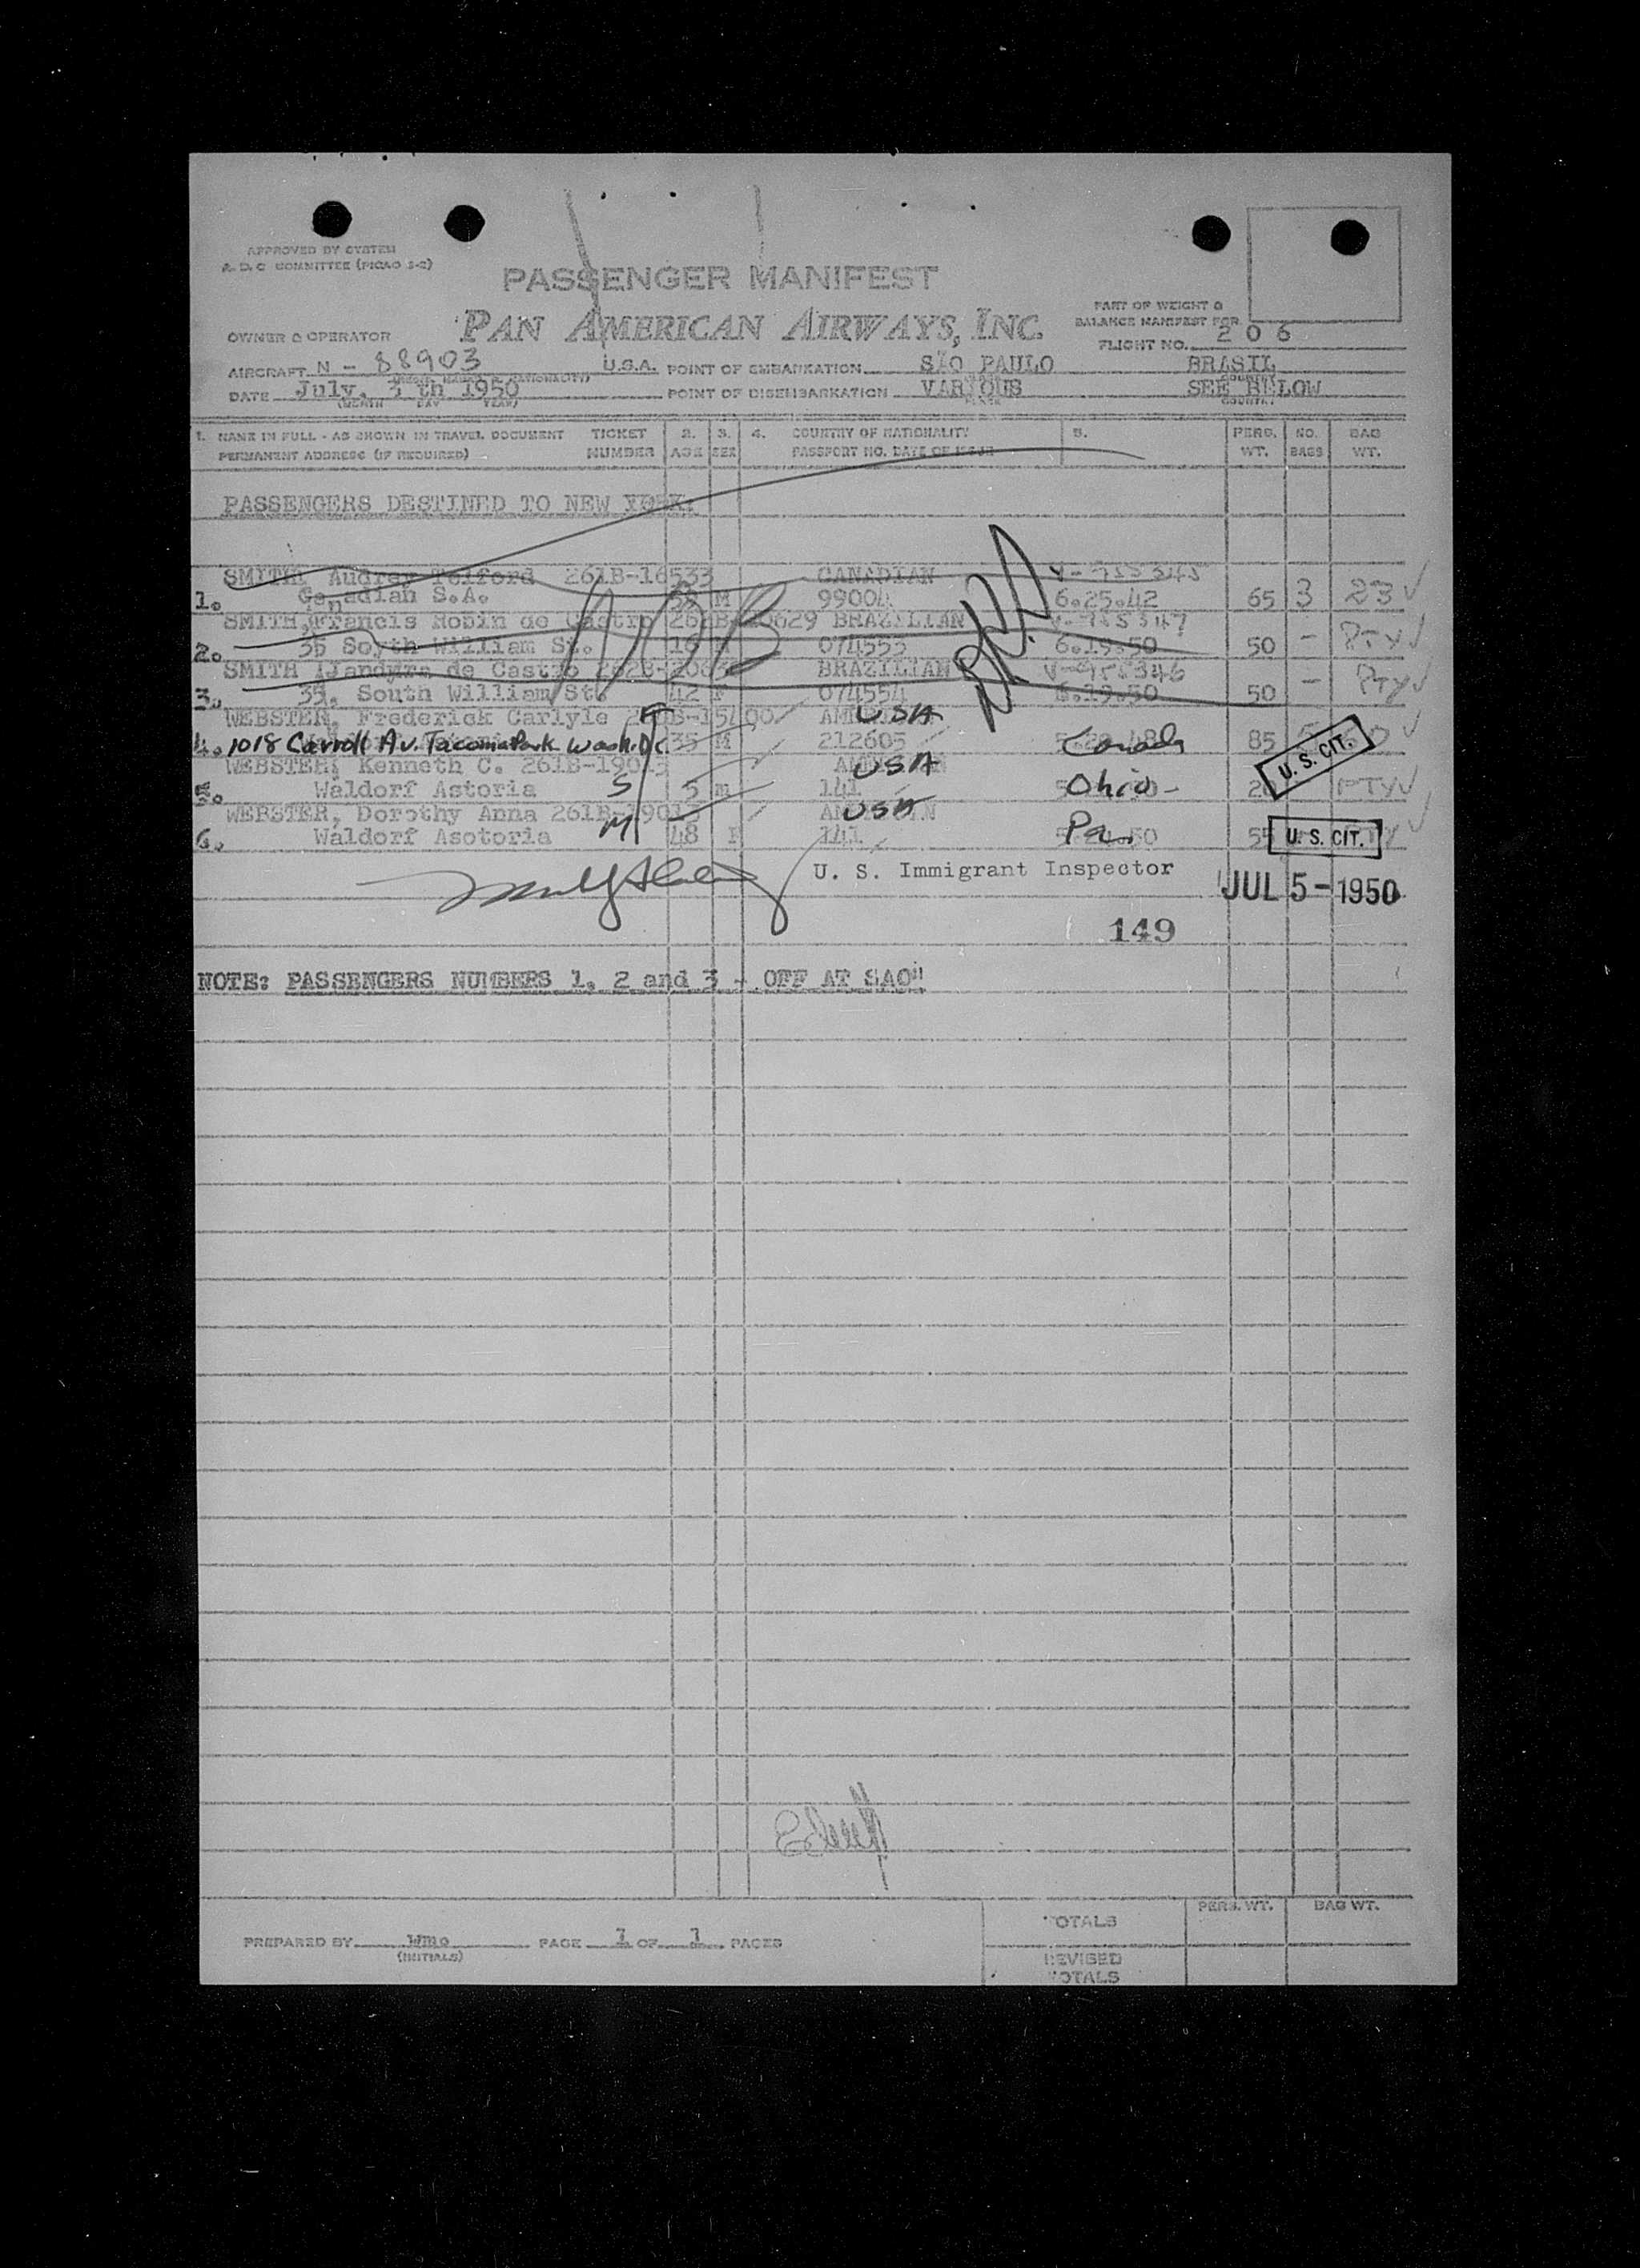 APPROVED BY SYSTEM
A. D. C COMMITTEE (PICAO S-2)
PASSENGER MANIFEST
OWNER & OPERATOR PAN AMERICAN AIRWAYS, INC.
PART OF WEIGHT &
BALANCE MANIFEST FOR
FLIGHT NO. 206
AIRCRAFT N - 88903 U.S.A. POINT OF EMBARKATION SÃO PAULO BRASIL
DATE July, th 1950 POINT OF DISEMBARKATION VARIOUS SEE BELOW
(MONTH DAY YEAR) PLACE COUNTRY
1. NAME IN FULL - AS SHOWN IN TRAVEL DOCUMENT TICKET 2. 3. 4. COUNTRY OF NATIONALITY 5. PERS. NO. BAG
PERMANENT ADDRESS (IF REQUIRED) NUMBER AGE SEX PASSPORT NO. DATE OF ISSUE WT. BAGS WT.
PASSENGERS DESTINED TO NEW YORK:
SMITH, Audrey Telford 261B-16533 CANADIAN V-955345
1. Canadian S.A. 58 M 99004 6.25.42 65 3 23
SMITH, Francis Robin de Castro 262B-20629 BRAZILIAN V-955347
2. 35 South William St. 16 074555 6.19.50 50 - PTY
SMITH, Jandyra de Castro 262B- BRAZILIAN V-955346
3. 35, South William St. 42 F 074554 6.19.50 50 - PTY
WEBSTER, Frederick Carlyle F USA
4. 1018 Carroll Av. Tacoma Park Wash. D.C. 35 M 212605 Canada 85 U. S. CIT.
WEBSTER, Kenneth C. 261B-19013 USA
5. Waldorf Astoria S 5 m 141 Ohio - PTY
WEBSTER, Dorothy Anna 261B-19013 USA
6. Waldorf Asotoria M 48 F 141 Pa. 55 U. S. CIT.
U. S. Immigrant Inspector JUL 5 - 1950
149
NOTE: PASSENGERS NUMBERS 1, 2 and 3 - OFF AT SAO"
TOTALS PERS. WT. BAG WT.
PREPARED BY wmo PAGE 1 OF 1 PAGES
(INITIALS)
REVISED
TOTALS